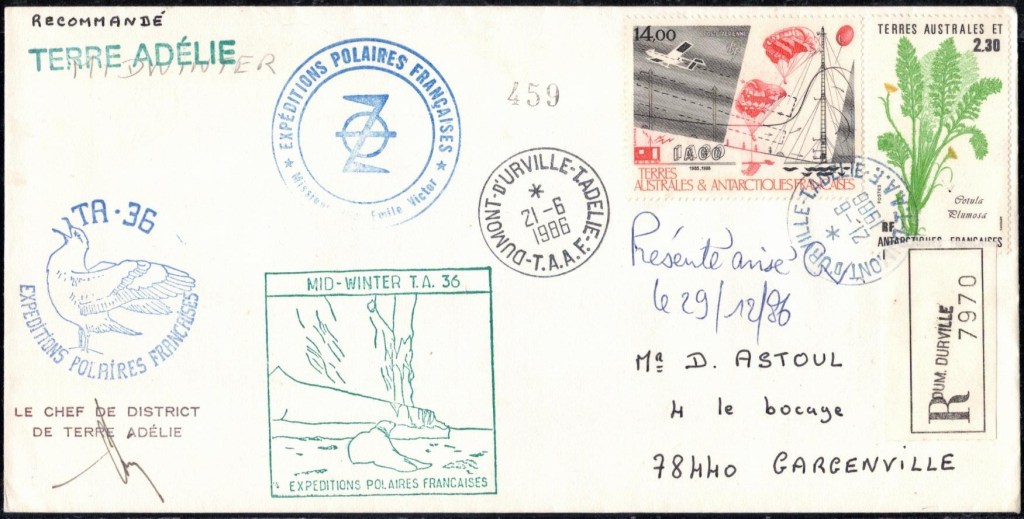 RECOMMANDÉ
TERRE ADÉLIE
MIDWINTER
★ EXPÉDITIONS POLAIRES FRANÇAISES ★
Missions Emile Victor
459
DUMONT-D'URVILLE-T.ADELIE-
T.A.A.F.
*
21-6
1986
14,00
POSTE AERIENNE
IAGO
1985.1986
TERRES
AUSTRALES & ANTARCTIQUES FRANÇAISES
TERRES AUSTRALES ET
2.30
POSTES
Cotula
Plumosa
RF
ANTARCTIQUES FRANÇAISES
DUMONT-D'URVILLE-T.ADELIE-
T.A.A.F.
*
21-6
1986
TA·36
EXPEDITIONS POLAIRES FRANÇAISES
MID-WINTER T.A. 36
EXPEDITIONS POLAIRES FRANCAISES
Présenté avisé
le 29/12/86
R
DUM. DURVILLE
7970
LE CHEF DE DISTRICT
DE TERRE ADÉLIE
D. ASTOUL
4 le bocage
78440 GARGENVILLE